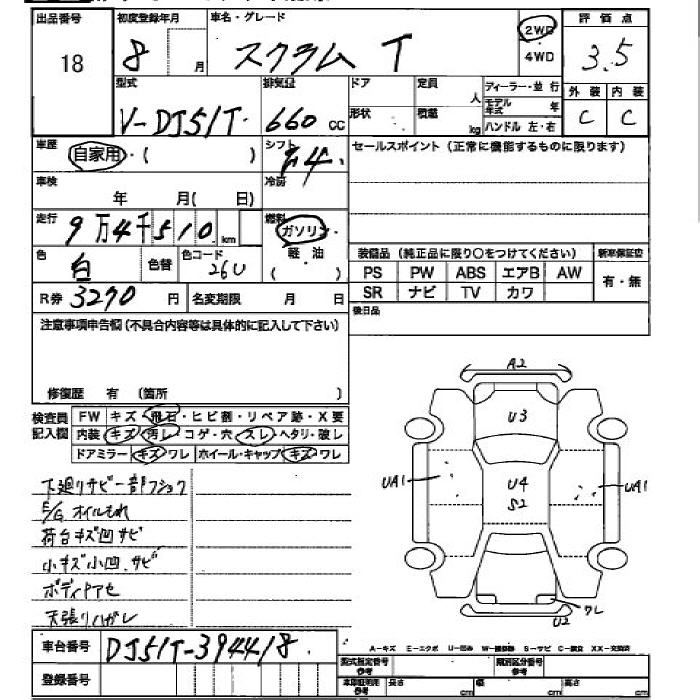 出品番号 初度登録年月 車名・グレード 2WD 評価点
18 8 月 スクラム T 4WD 3.5
型式 排気量 ドア 定員 人 ディーラー・並行 外装 内装
V-DJ51T 660 cc 形状 積載 kg モデル年式 年 C C
ハンドル 左・右
車歴 自家用・( ) シフト 4 セールスポイント(正常に機能するものに限ります)
車検 年 月( 日) 冷房
走行 9万4千510 km 燃料 ガソリン・
色 白 色替 色コード 26U 軽・油 ( )
装備品(純正品に限り○をつけてください) 新車保証書
PS PW ABS エアB AW 有・無
SR ナビ TV カワ
R券 3270 円 名変期限 月 日 後日品
注意事項申告欄(不具合内容等は具体的に記入して下さい)
修復歴 有 (箇所 )
検査員記入欄 FW キズ・飛石・ヒビ割・リペア跡・X要
内装 キズ・汚レ・コゲ・穴・スレ・ヘタリ・破レ
ドアミラー キズ・ワレ ホイール・キャップ キズ・ワレ
下廻りサビ一部フショク
E/Gオイルもれ
荷台キズ凹サビ
小キズ小凹.サビ
ボディヤケ
天張りハガレ
A2
U3
UA1 U4 UA1
S2
ワレ
U2
車台番号 DJ51T-394418
A-キズ E-エクボ U-凹み W-補修跡 S-サビ C-腐食 XX-交換済
登録番号
型式指定番号 参考 類別区分番号 参考
車庫証明用 参考 長さ cm 幅 cm 高さ cm